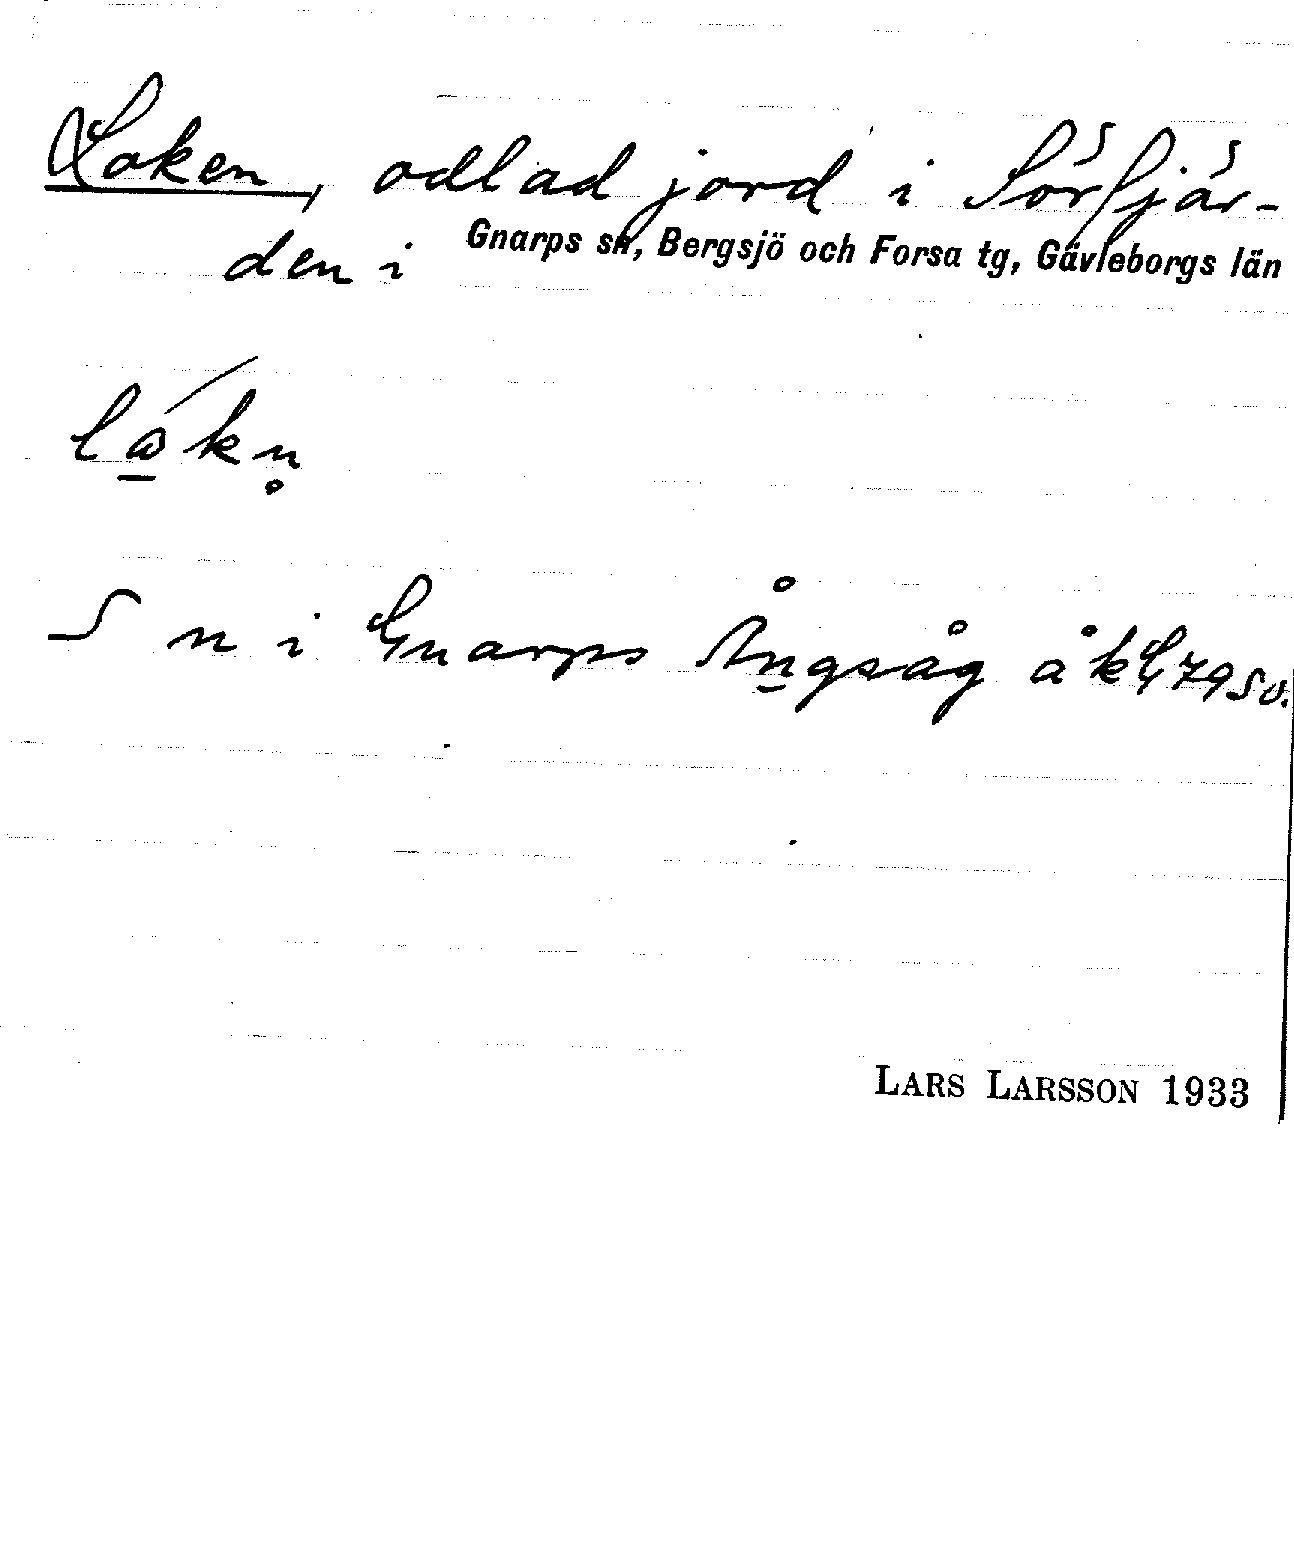 Loken, odlad jord i Sörfjär-
den i Gnarps sn, Bergsjö och Forsa tg, Gävleborgs län
S n i Gnarps Ångsåg åkG79
LARS LARSSON 1933